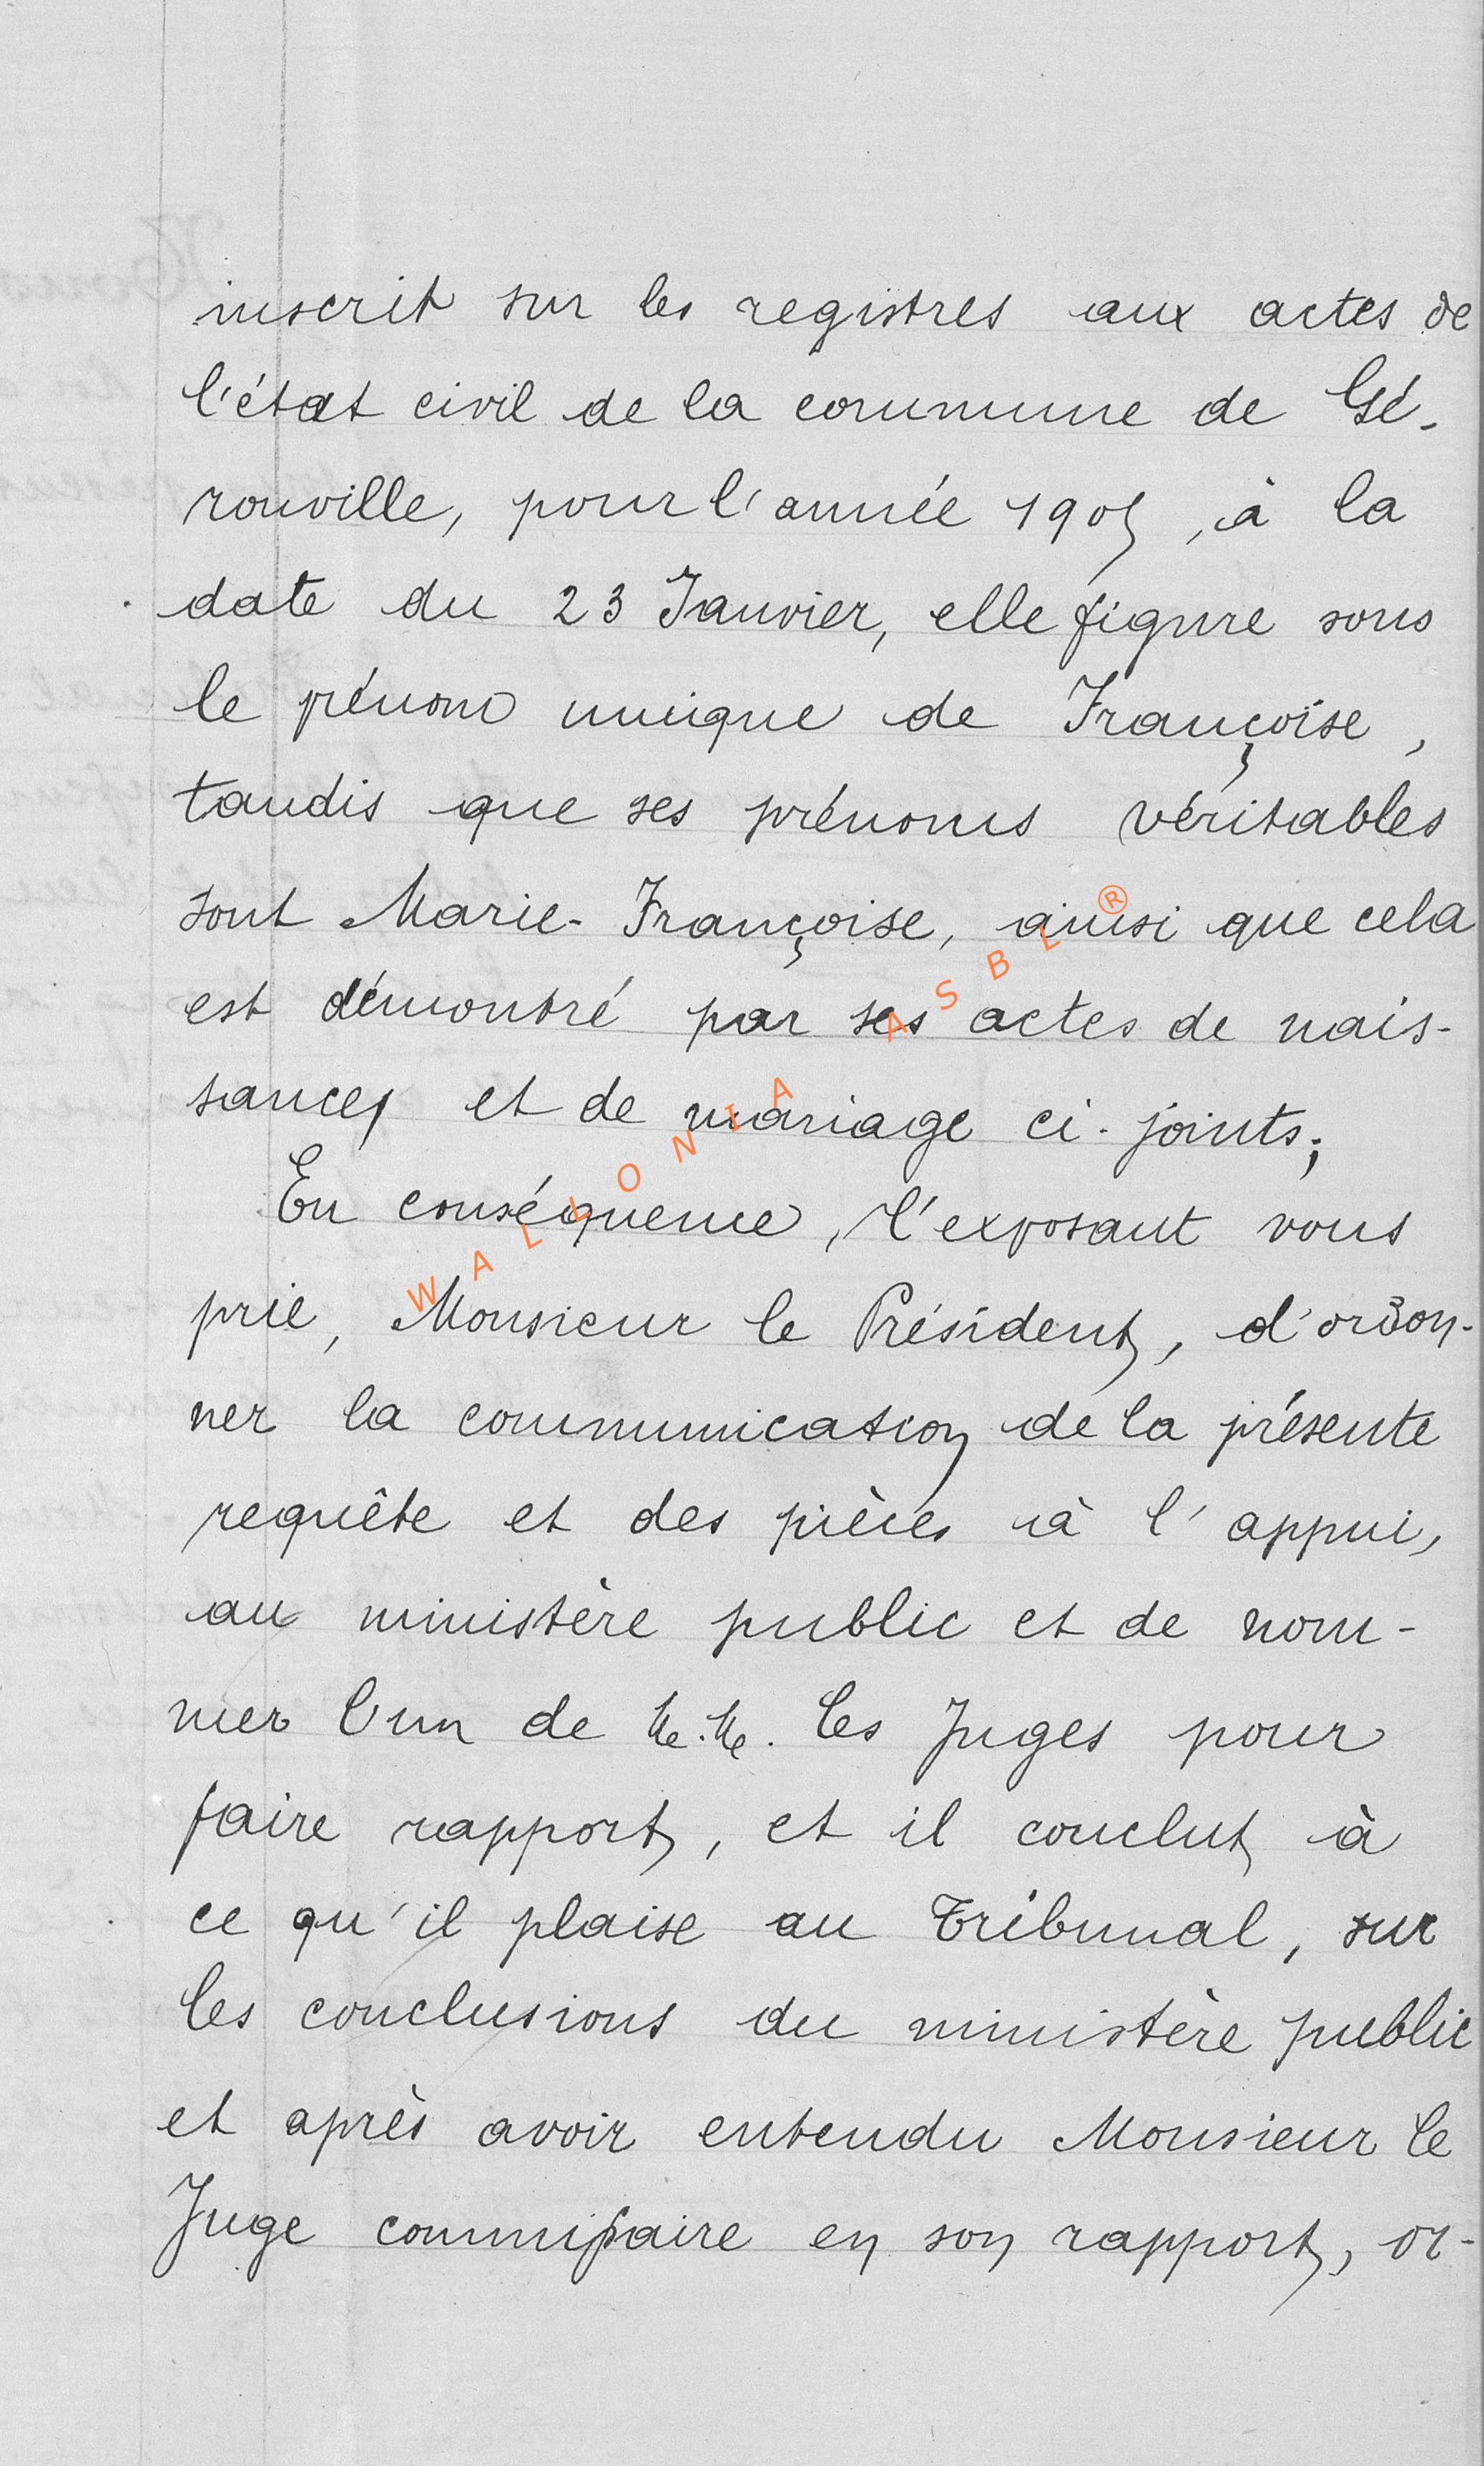 inscrit sur les registres aux actes de
l'état civil de la commune de Gé-
rouville, pour l'année 1905, à la
date du 23 Janvier, elle figure sous
le prénom unique de Françoise,
tandis que ses prénoms véritables
sont Marie-Françoise, ainsi que cela
est démontré par ses actes de nais-
sance et de mariage ci-joints;
En conséquence, l'exposant vous
prie, Monsieur le Président, d'ordon-
ner la communication de la présente
requête et des pièces à l'appui,
au ministère public et de nom-
mer l'un de M.M. les Juges pour
faire rapport, et il conclut à
ce qu'il plaise au Tribunal, sur
les conclusions du ministère public
et après avoir entendu Monsieur le
Juge commissaire en son rapport, or-
WALLONIA ASBL ®